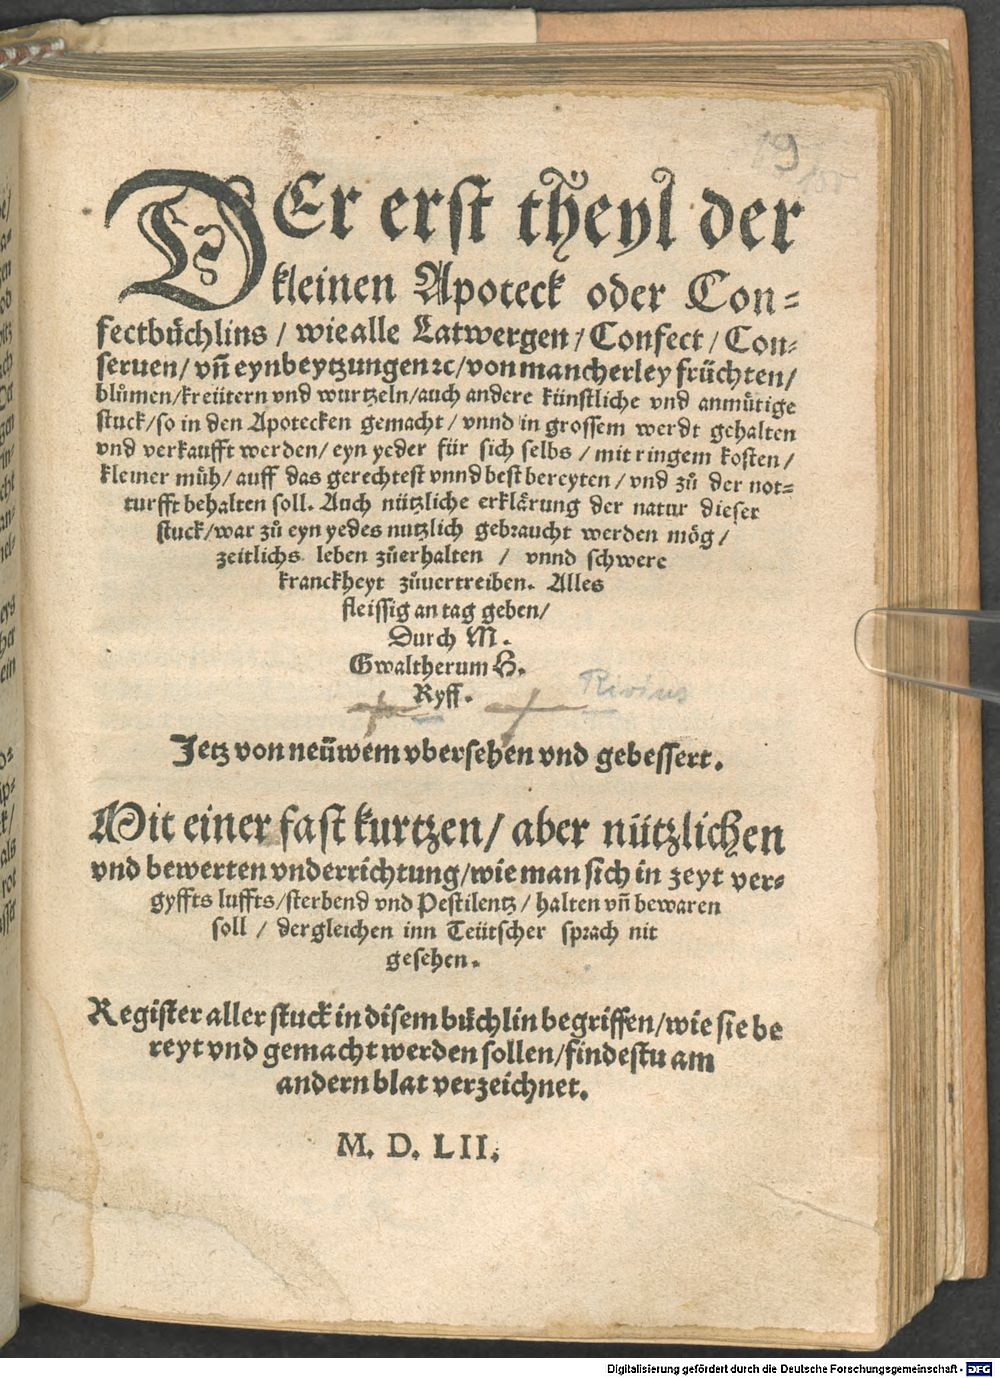 19
DEr erst theyl der
kleinen Apoteck oder Con=
fectbůchlins / wie alle Latwergen / Confect / Con-
seruen / vñ eynbeytzungen ꝛc / von mancherley früchten /
blůmen / kreütern vnd wurtzeln / auch andere künstliche vnd anmütige
stuck / so in den Apotecken gemacht / vnnd in grossem werdt gehalten
vnd verkaufft werden / eyn yeder für sich selbs / mit ringem kosten /
kleiner müh / auff das gerechtest vnnd best bereyten / vnd zů der not=
turfft behalten soll. Auch nützliche erklärung der natur dieser
stuck / war zů eyn yedes nutzlich gebraucht werden mög /
zeitlichs leben zůerhalten / vnnd schwere
kranckheyt zůuertreiben. Alles
fleissig an tag geben /
Durch M.
Gwaltherum H.
Ryff.
Rivius
Jetz von neüwem vbersehen vnd gebessert.
Mit einer fast kurtzen / aber nützlichen
vnd bewerten vnderrichtung / wie man sich in zeyt ver=
gyffts luffts / sterbend vnd Pestilentz / halten vñ bewaren
soll / dergleichen inn Teütscher sprach nit
gesehen.
Register aller stuck in disem bůchlin begriffen / wie sie be
reyt vnd gemacht werden sollen / findestu am
andern blat verzeichnet.
M. D. LII.
Digitalisierung gefördert durch die Deutsche Forschungsgemeinschaft - DFG